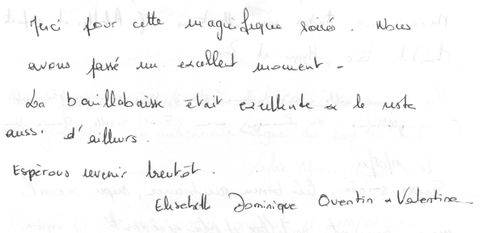 Merci pour cette magnifique soirée. Nous
avons passé un excellent moment -
La baillabaisse était excellente & le reste
aussi d'ailleurs.
Espérons revenir bientôt.
Elisabeth Dominique Quentin & Valentine